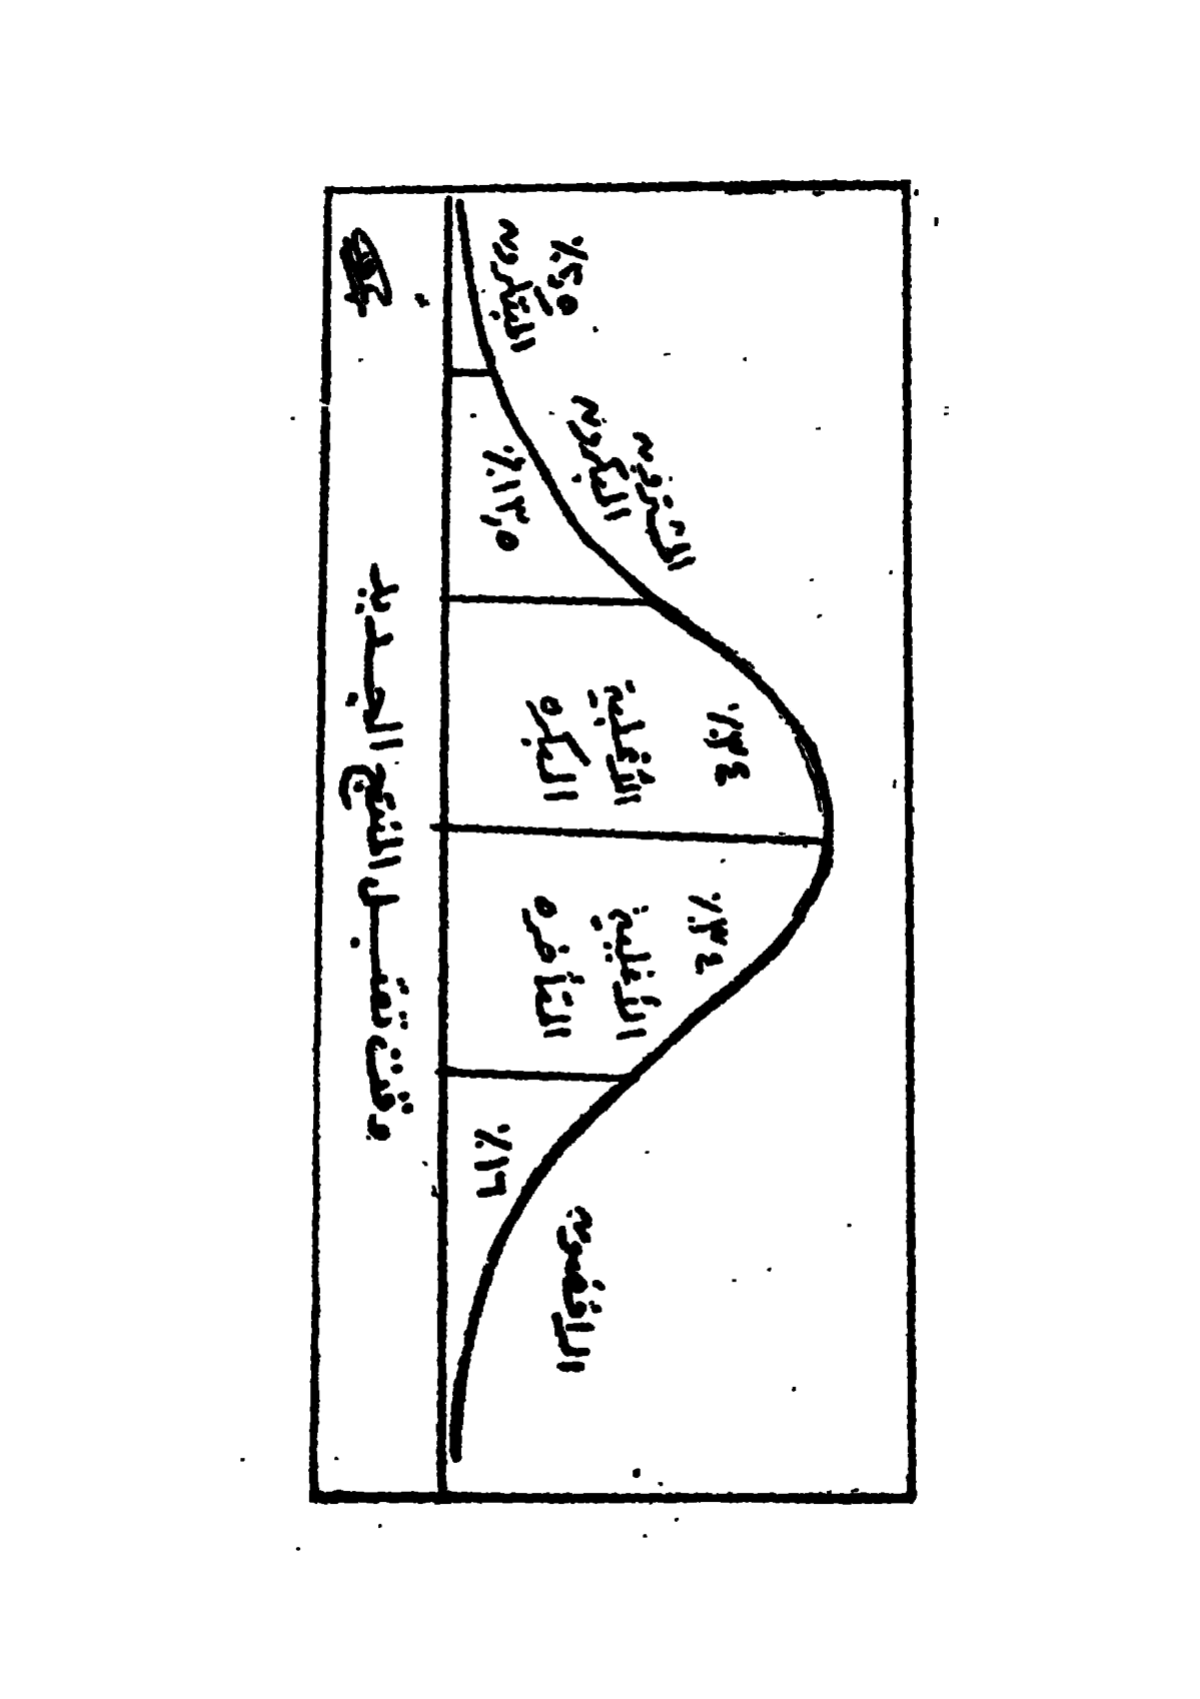 ٪٢,٥
المبتكرون
المشترون
المبكرون
٪١٣,٥
٪٣٤
الأغلبية
المبكره
٪٣٤
الأغلبية
المتأخره
٪١٦
الرافضون
وقت تقبل المنتج الجديد